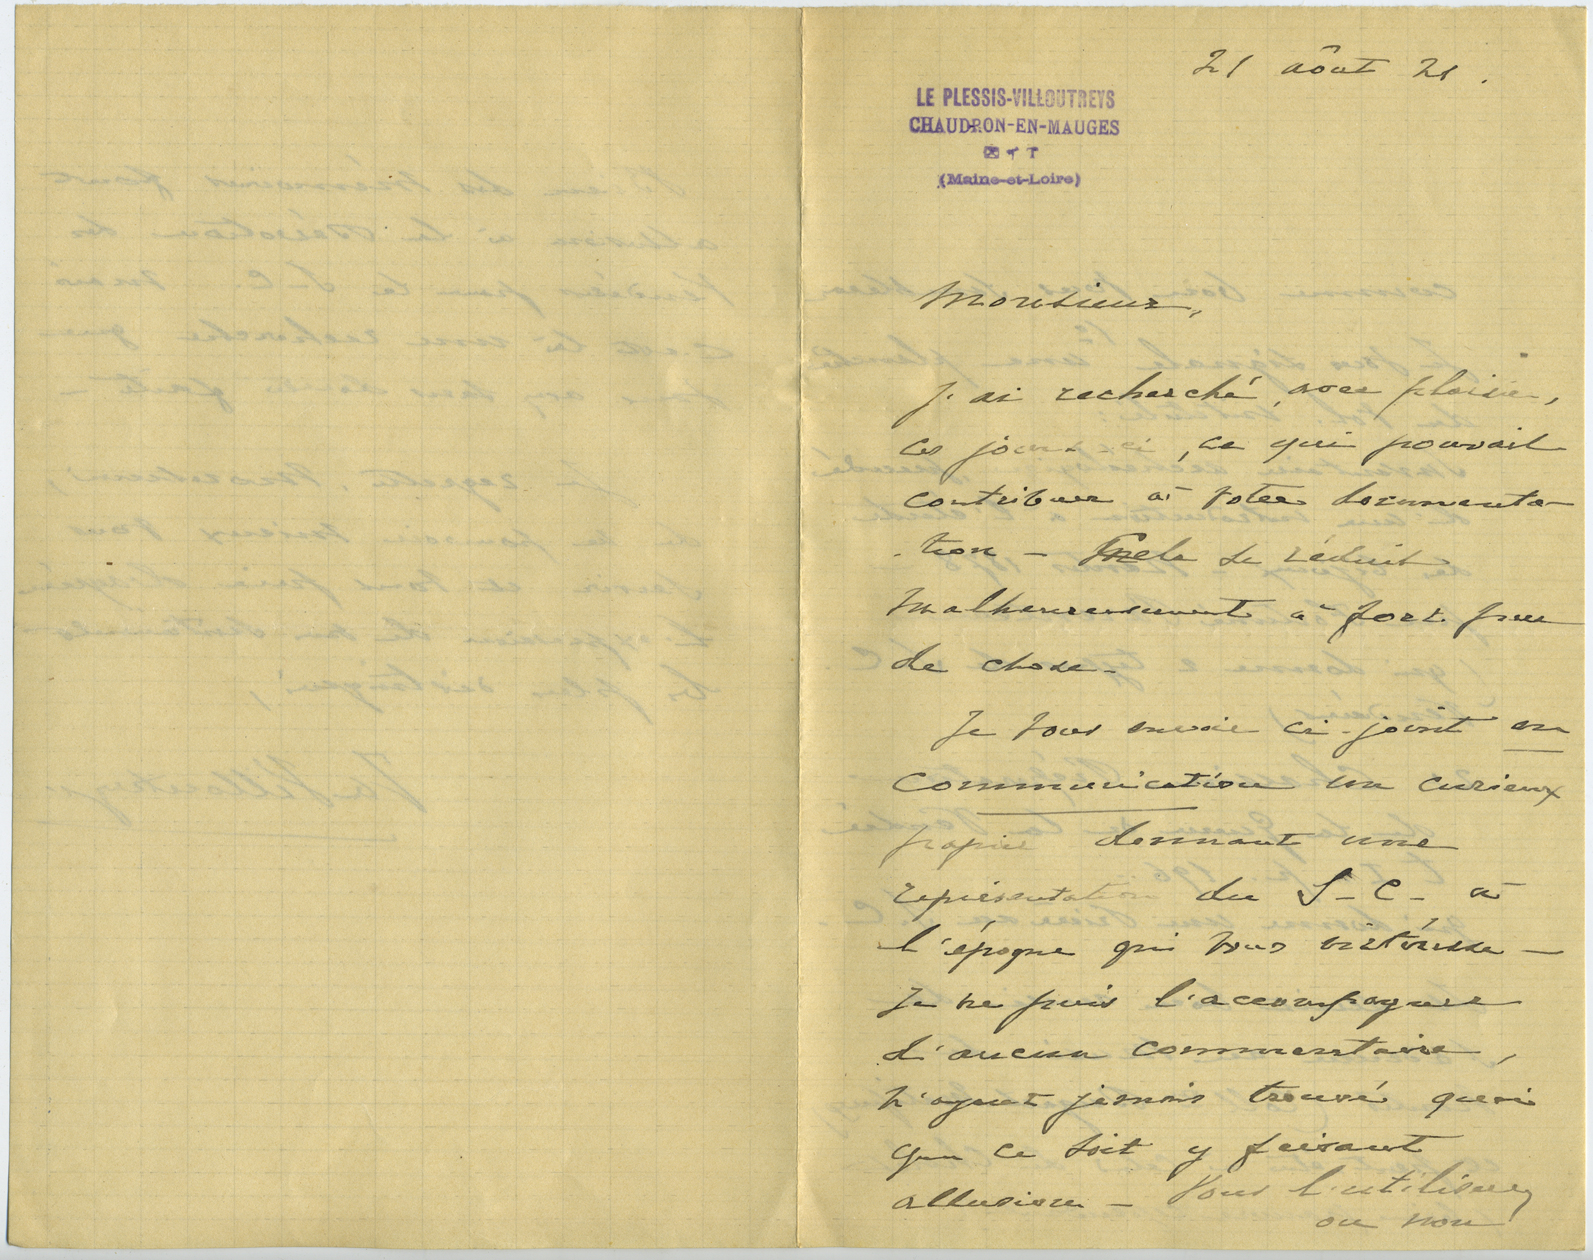 21 août 21.
LE PLESSIS-VILLOUTREYS
CHAUDRON-EN-MAUGES
(Maine-et-Loire)
Monsieur,
J'ai recherché, avec plaisir,
ces jours-ci, ce qui pouvait
contribuer à votre documenta-
-tion - se réduit
malheureusement à fort peu
de chose.
Je vous envoie ci-joint en
communication un curieux
papier donnant une
représentation du S-C- à
l'époque qui vous intéresse -
Je ne puis l'accompagner
d'aucun commentaire,
n'ayant jamais trouvé quoi
que ce soit y faisant
allusion - Vous l'utiliserez
ou non